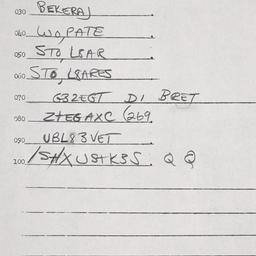 030 BEKERAJ.
040 WO, PATE.
050 STO, L8AR.
060 STO, L8ARES
070 G32EGT DI BRET
080 ZTEGAXC (269.
090 UBL83VET.
100 Q Q